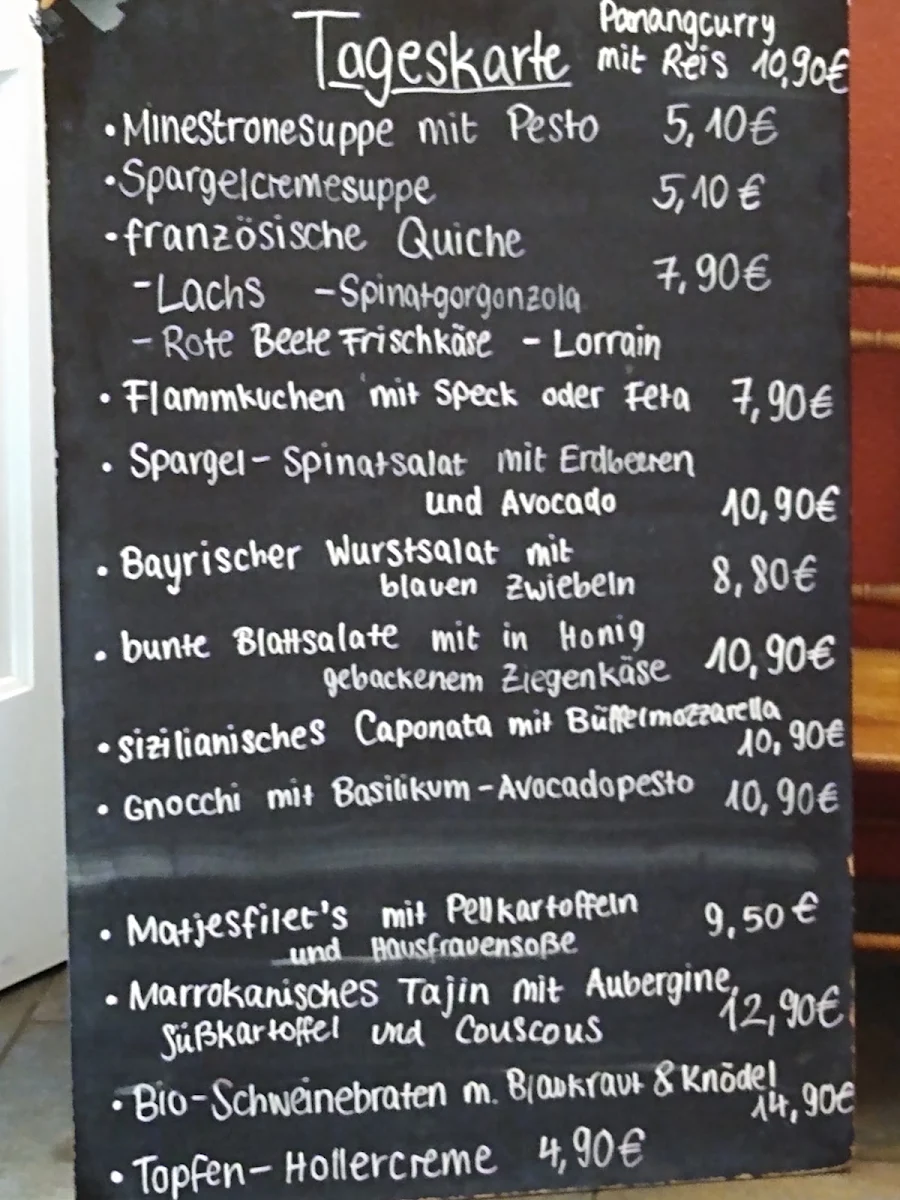 Tageskarte
Panangcurry
mit Reis 10,90€
• Minestronesuppe mit Pesto 5,10€
• Spargelcremesuppe 5,10 €
• französische Quiche
7,90€
- Lachs - Spinatgorgonzola
- Rote Beete Frischkäse - Lorrain
• Flammkuchen mit Speck oder Feta 7,90€
• Spargel - Spinatsalat mit Erdbeeren
und Avocado 10,90€
• Bayrischer Wurstsalat mit
blauen Zwiebeln 8,80€
• bunte Blattsalate mit in Honig
gebackenem Ziegenkäse 10,90€
• sizilianisches Caponata mit Büffelmozzarella
10,90€
• Gnocchi mit Basilikum - Avocadopesto 10,90€
• Matjesfilet's mit Pellkartoffeln 9,50€
und Hausfrauensoße
• Marrokanisches Tajin mit Aubergine,
Süßkartoffel und Couscous 12,90€
• Bio-Schweinebraten m. Blaukraut & Knödel
14,90€
• Topfen - Hollercreme 4,90€